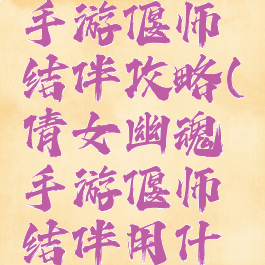 手游偃师
结伴攻略(
倩女幽魂
手游偃师
结伴用什